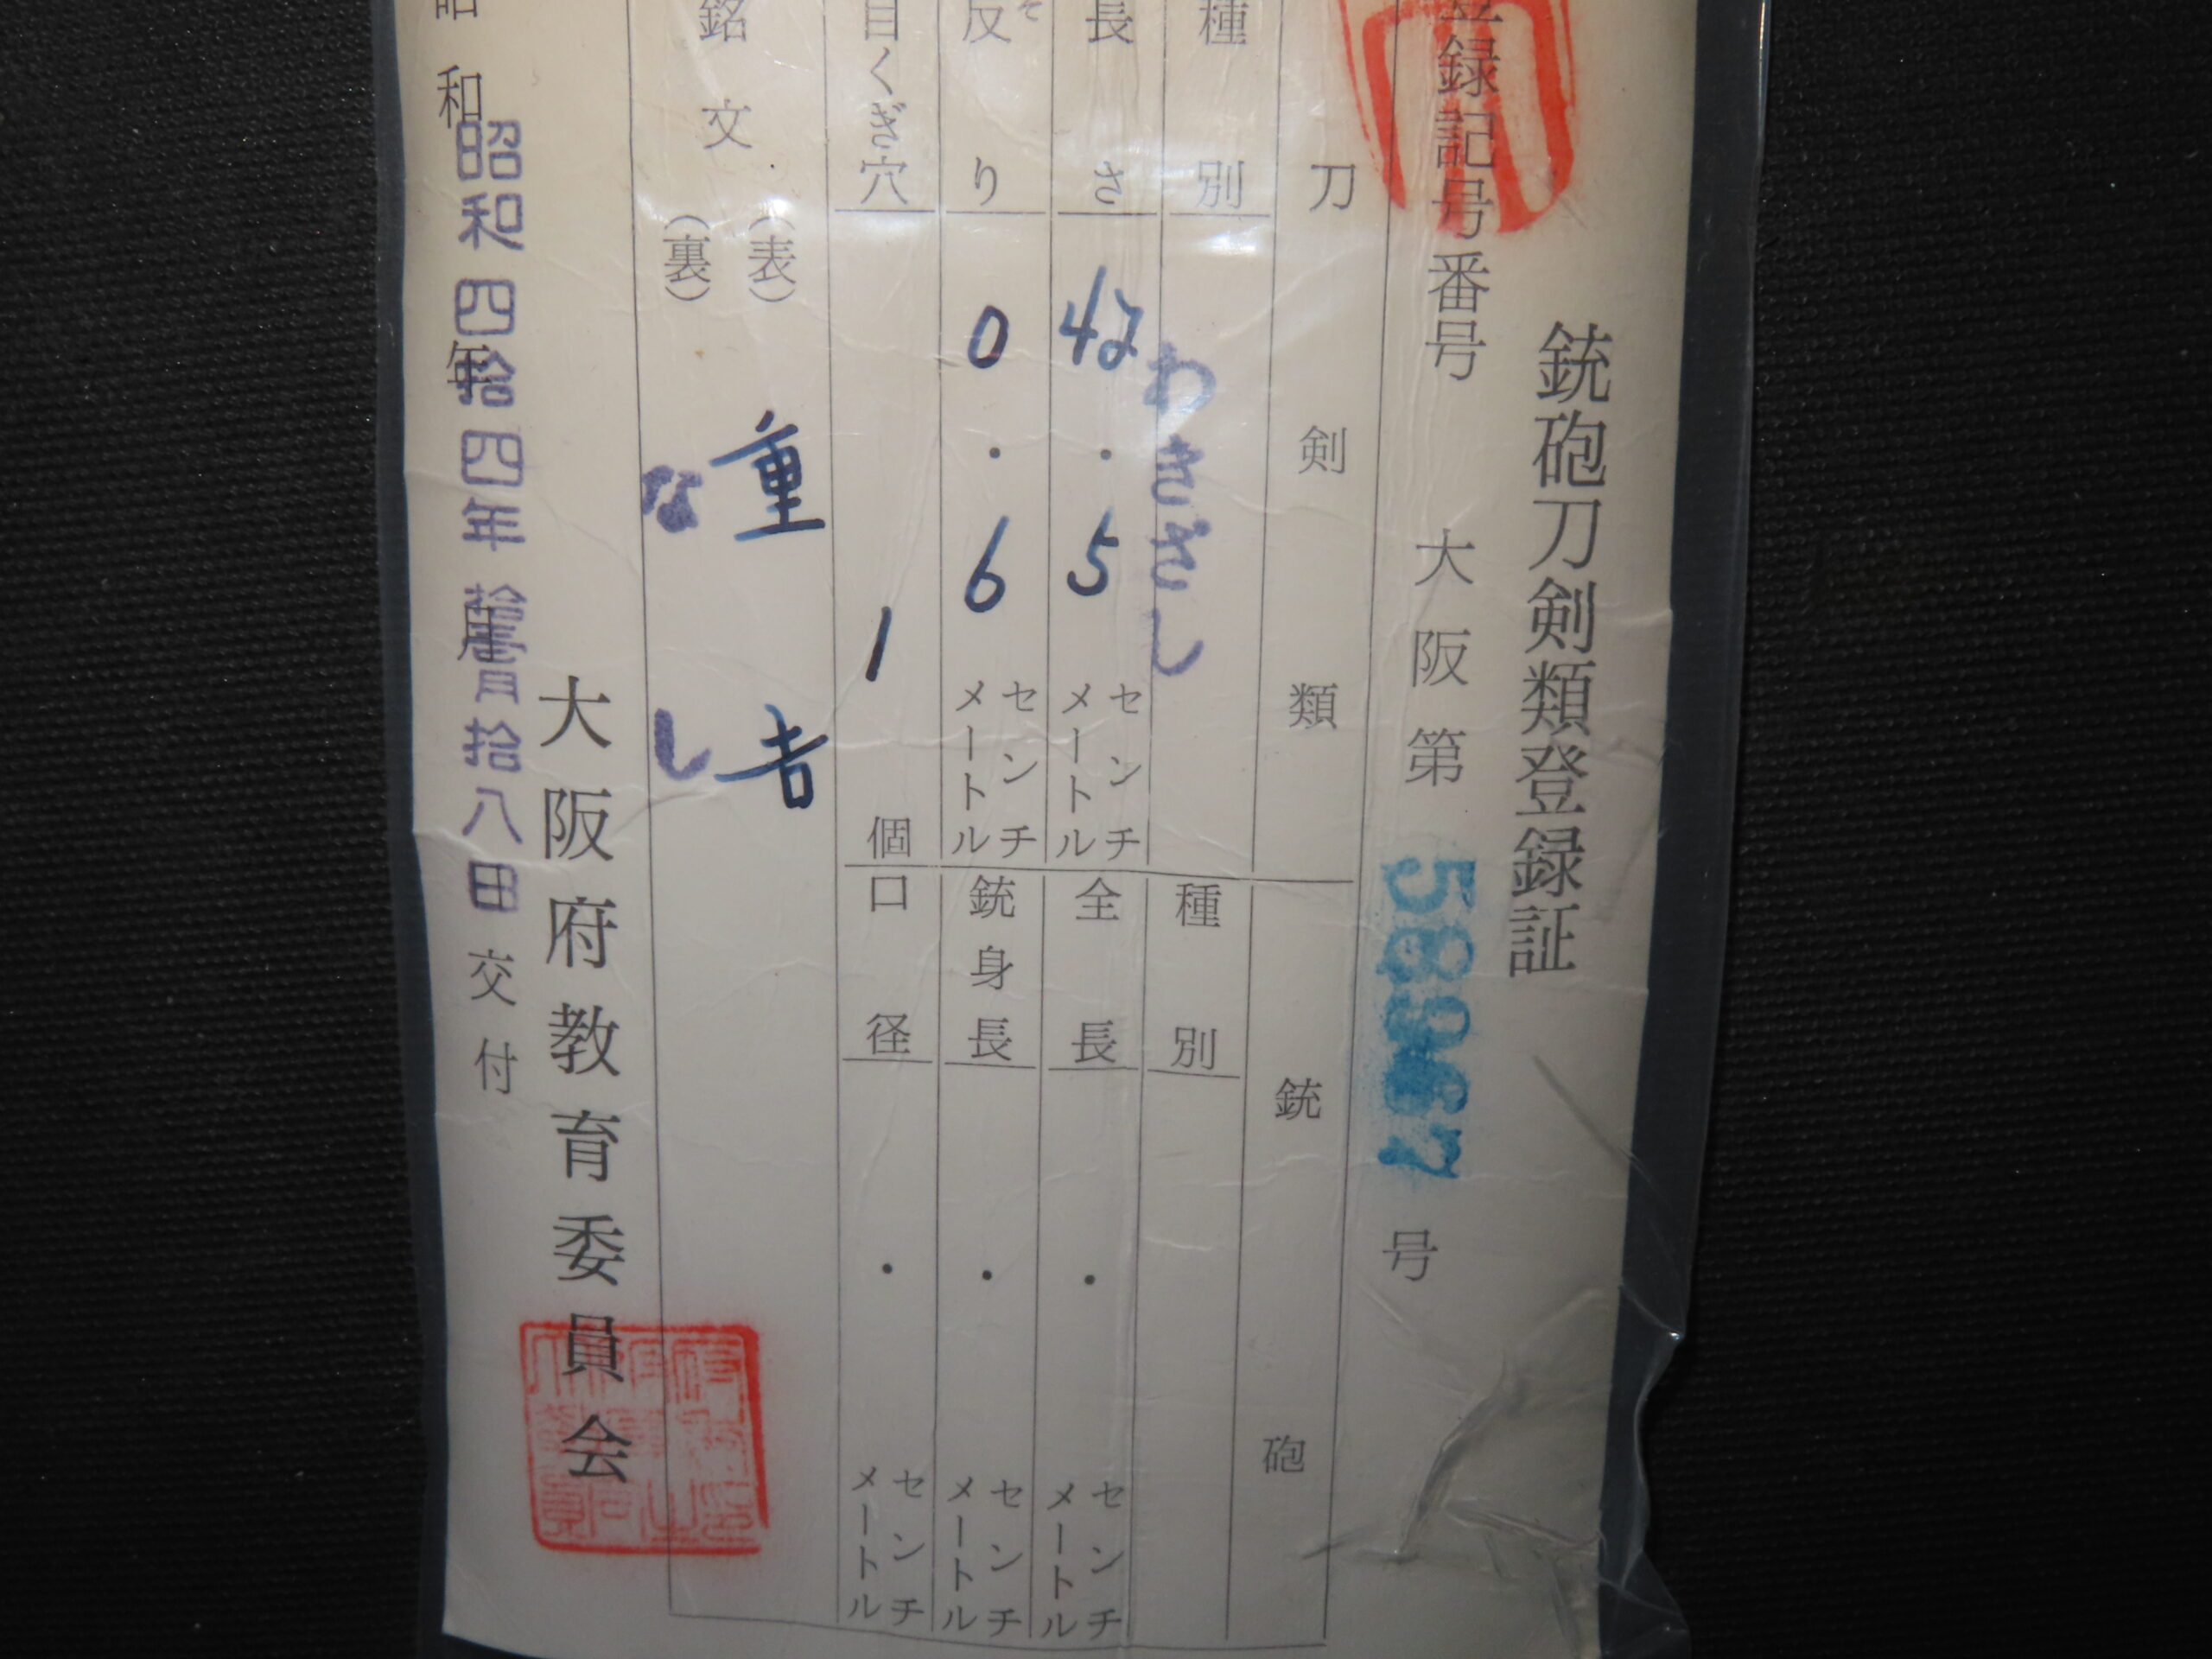 銃砲刀剣類登録証
登録記号番号 大阪第 号
刀剣類
種別 わきざし
長さ 42.5 センチメートル
反り 0.6 センチメートル
目くぎ穴 1 個
銘文 (表) 重吉
(裏) なし
銃砲
種別
全長 ・ センチメートル
銃身長 ・ センチメートル
口径 ・ センチメートル
大阪府教育委員会
昭和 年 月 交付
昭和四拾四年 月拾八日